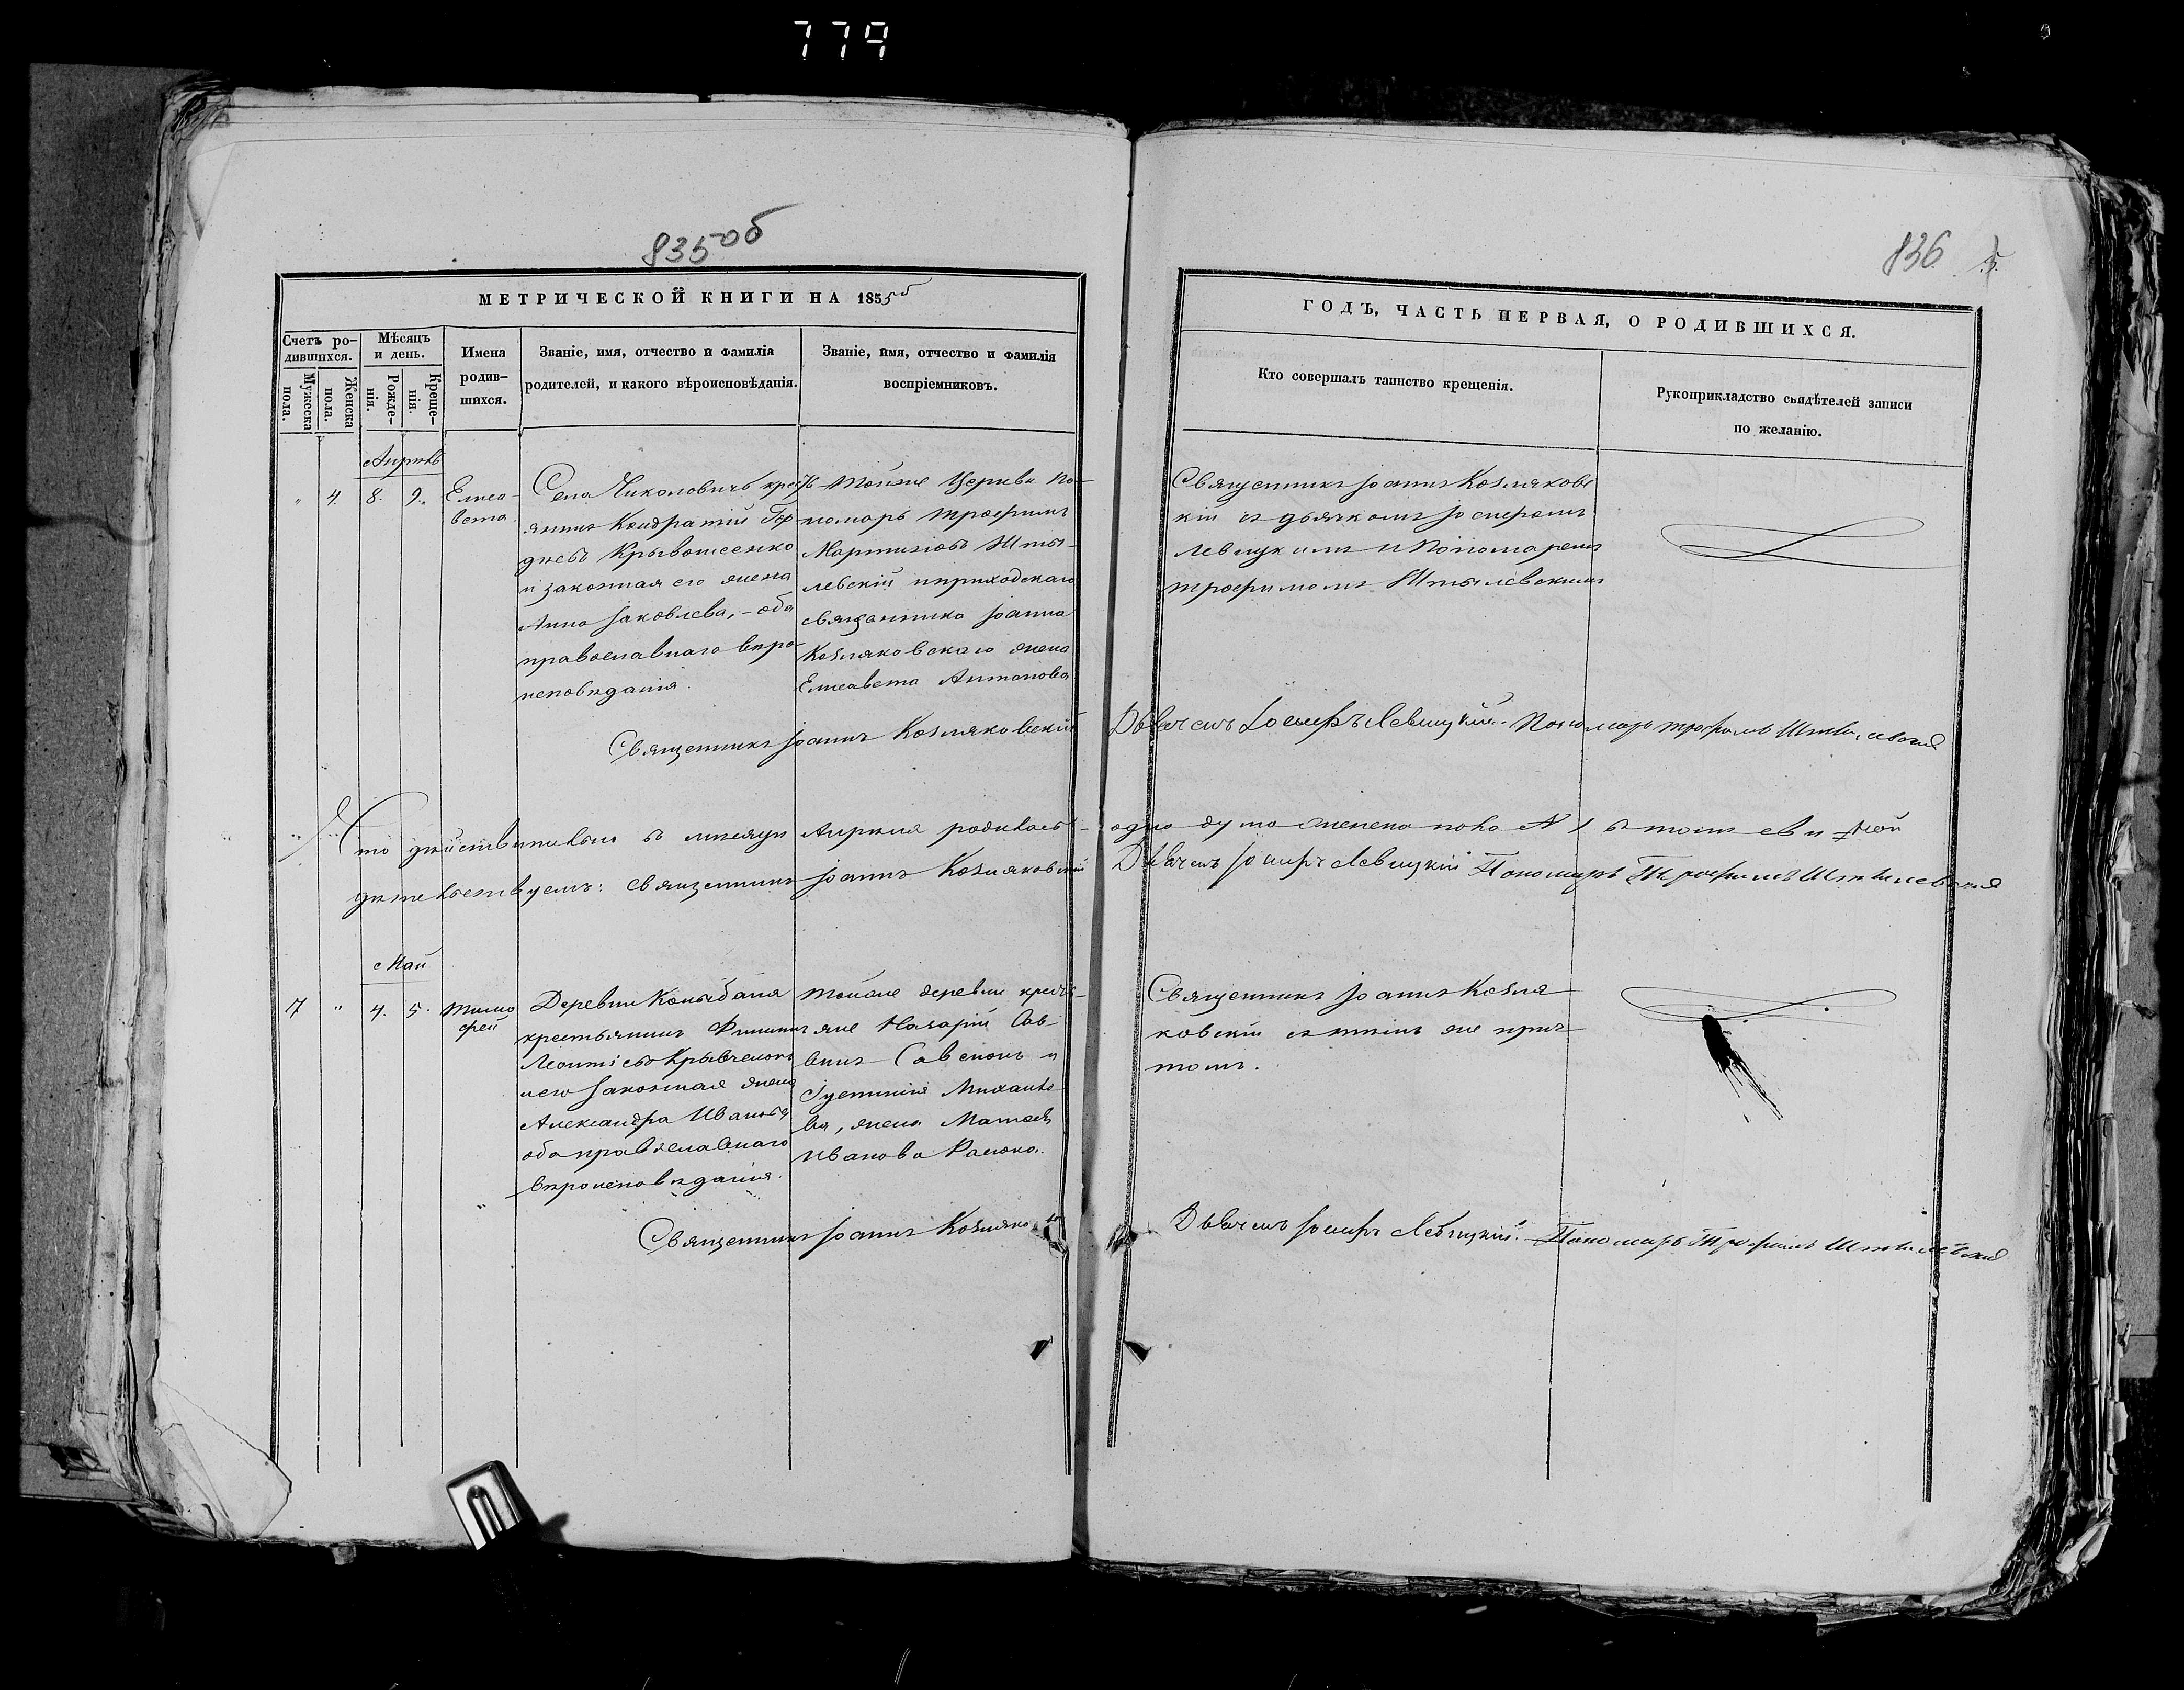 779
835об
836
МЕТРИЧЕСКОЙ КНИГИ НА 1855
ГОДЪ, ЧАСТЬ ПЕРВАЯ, О РОДИВШИХСЯ.
Счетъ ро-
дившихся.
Мужеска
пола.
Женска
пола.
Мѣсяцъ
и день.
Рожде-
нія.
Креще-
нія.
Имена
родив-
шихся.
Званіе, имя, отчество и фамилія
родителей, и какого вѣроисповѣданія.
Званіе, имя, отчество и фамилія
воспріемниковъ.
Кто совершалъ таинство крещенія.
Рукоприкладство свидѣтелей записи
по желанію.
Апрѣль
" 4. 8. 9.
Елиса-
вета.
Села
Кондратій
Крывошеенко
и законная его жена
Анна Іаковлева, - оба
православнаго вѣро-
исповѣданія.
тойже Церкви по-
номарь Трофимъ
Шты-
левскій и приходскаго
священника Іоанна
Козляковскаго жена
Елисавета Антонова
Священникъ Іоаннъ Козляков-
кій съ дьячкомъ Іосифомъ
Левицкимъ и Пономаремъ
Трофимомъ Штылевскимъ
Священникъ Іоаннъ Козляковскій Дьячекъ Іосифъ Левицкій. Пономарь Трофимъ Штылевскій
Что дѣйствительно въ мѣсяцѣ Апрѣлѣ родилось одно женска пола № 1 въ томъ сви
дѣтельствуемъ: Священникъ Іоаннъ Козляковскій Дьячекъ Іосифъ Левицкій Пономарь Трофимъ Штылевскій
Май
7 " 4. 5.
Тимо
фей
Деревни
крестьянинъ Филипъ
Леонтіевъ
и его Законная жена
Александра Иванова
оба православнаго
вѣроисповѣданія.
тойже деревни кресть-
яне Назарій Сав-
винъ Савенокъ и
Іустинія Михайло-
ва, жена Матвѣя
Иванова
Священникъ Іоаннъ Козля
ковскій съ тѣмъ же прич
томъ.
Священникъ Іоаннъ Дьячекъ Іосифъ Левицкій. Пономарь Трофимъ Штылевскій